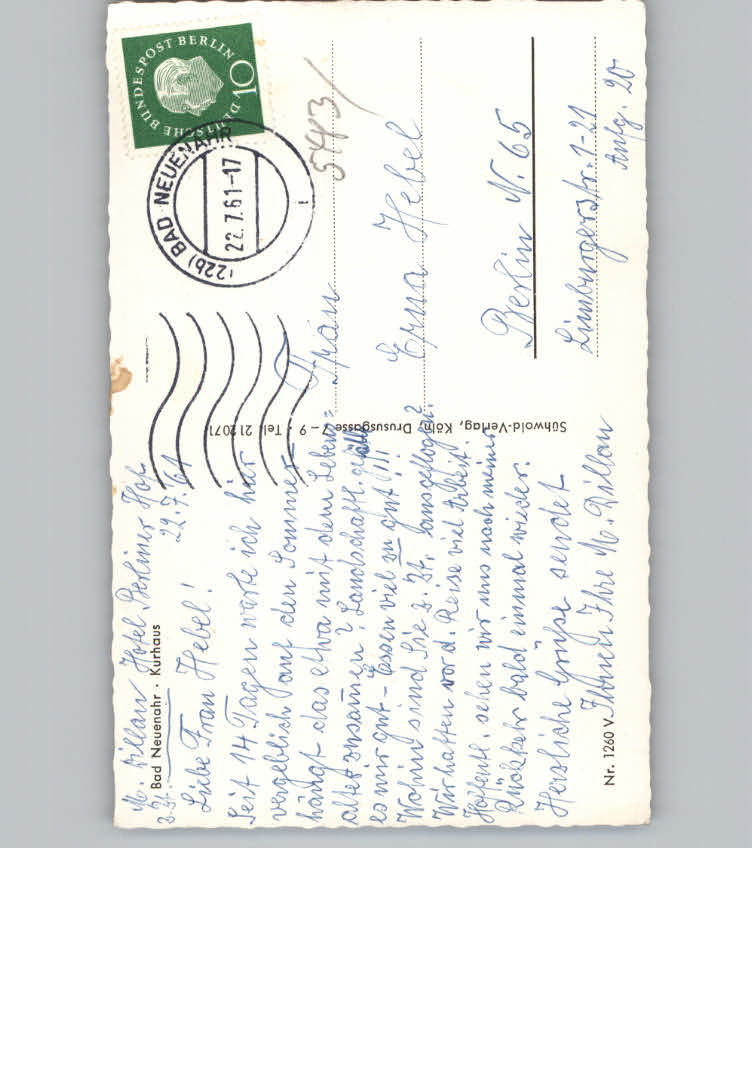 M. Dillan Hotel Berliner Hof
Bad Neuenahr · Kurhaus
z. Zt. 22.7.61
Liebe Frau Hebel!
Seit 14 Tagen warte ich hier
vergeblich auf den Sommer –
hängt das etwa mit dem Lebens=
alter zusammen? Landschaftl. gefällt
es mir gut – Essen viel zu gut!!!
Wohin sind Sie z. Zt. ausgeflogen?
Wir hatten vor d. Reise viel Arbeit.
Hoffentl. sehen wir uns nach meiner
Rückkehr bald einmal wieder.
Herzliche Grüße sendet
Ihnen Ihre M. Dillan
Nr. 1260 V
Sühwold-Verlag, Köln, Drususgasse 7–9 · Tel. 212071
DEUTSCHE BUNDESPOST BERLIN
10
(22b) BAD NEUENAHR
22.7.61-17
5443/
Frau
Erna Hebel
Berlin N. 65
Limburgerstr. 1-21
Aufg. 20